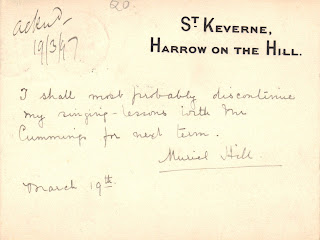 20.
ackn^d
19/3/97
ST KEVERNE,
HARROW ON THE HILL.
I shall most probably discontinue
my singing-lessons with Mr
Cummings for next term.
Muriel Hill.
March 19th.